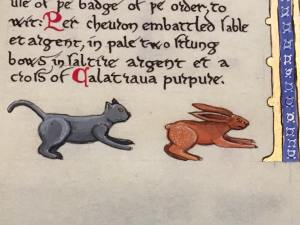 use of þe badge of þe order, to
wit: Per cheuron embattled sable
et argent, in pale two strung
bows in saltire argent et a
cross of Calatraua purpure.